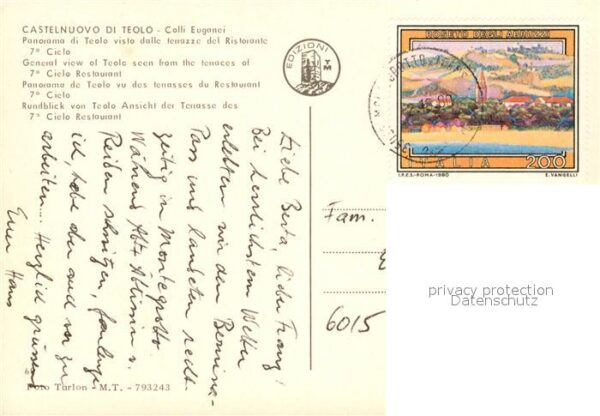 CASTELNUOVO DI TEOLO - Colli Euganei
Panorama di Teolo visto dalle terrazze del Ristorante
7° Cielo
General view of Teolo seen from the terraces of
7° Cielo Restaurant
Panorama de Teolo vu des terrasses du Restaurant
7° Cielo
Rundblick von Teolo Ansicht der Terrasse des
7° Cielo Restaurant
EDIZIONI
TM
ROSETO DEGLI ABRUZZI
ITALIA 200
I.P.Z.S.-ROMA-1980 E. VANGELLI
Liebe Berta, lieber Franz!
Bei herrlichstem Wetter
erlebten wir den Bernina-
Pass und landeten recht-
zeitig in Montegrotto.
Während
Reiben schwitzen, faulenze
ich, habe aber auch vor zu
arbeiten... Herzlich grüsst
Euer Hans
Fam.
6015
privacy protection
Datenschutz
Foto Turlon - M.T. - 793243